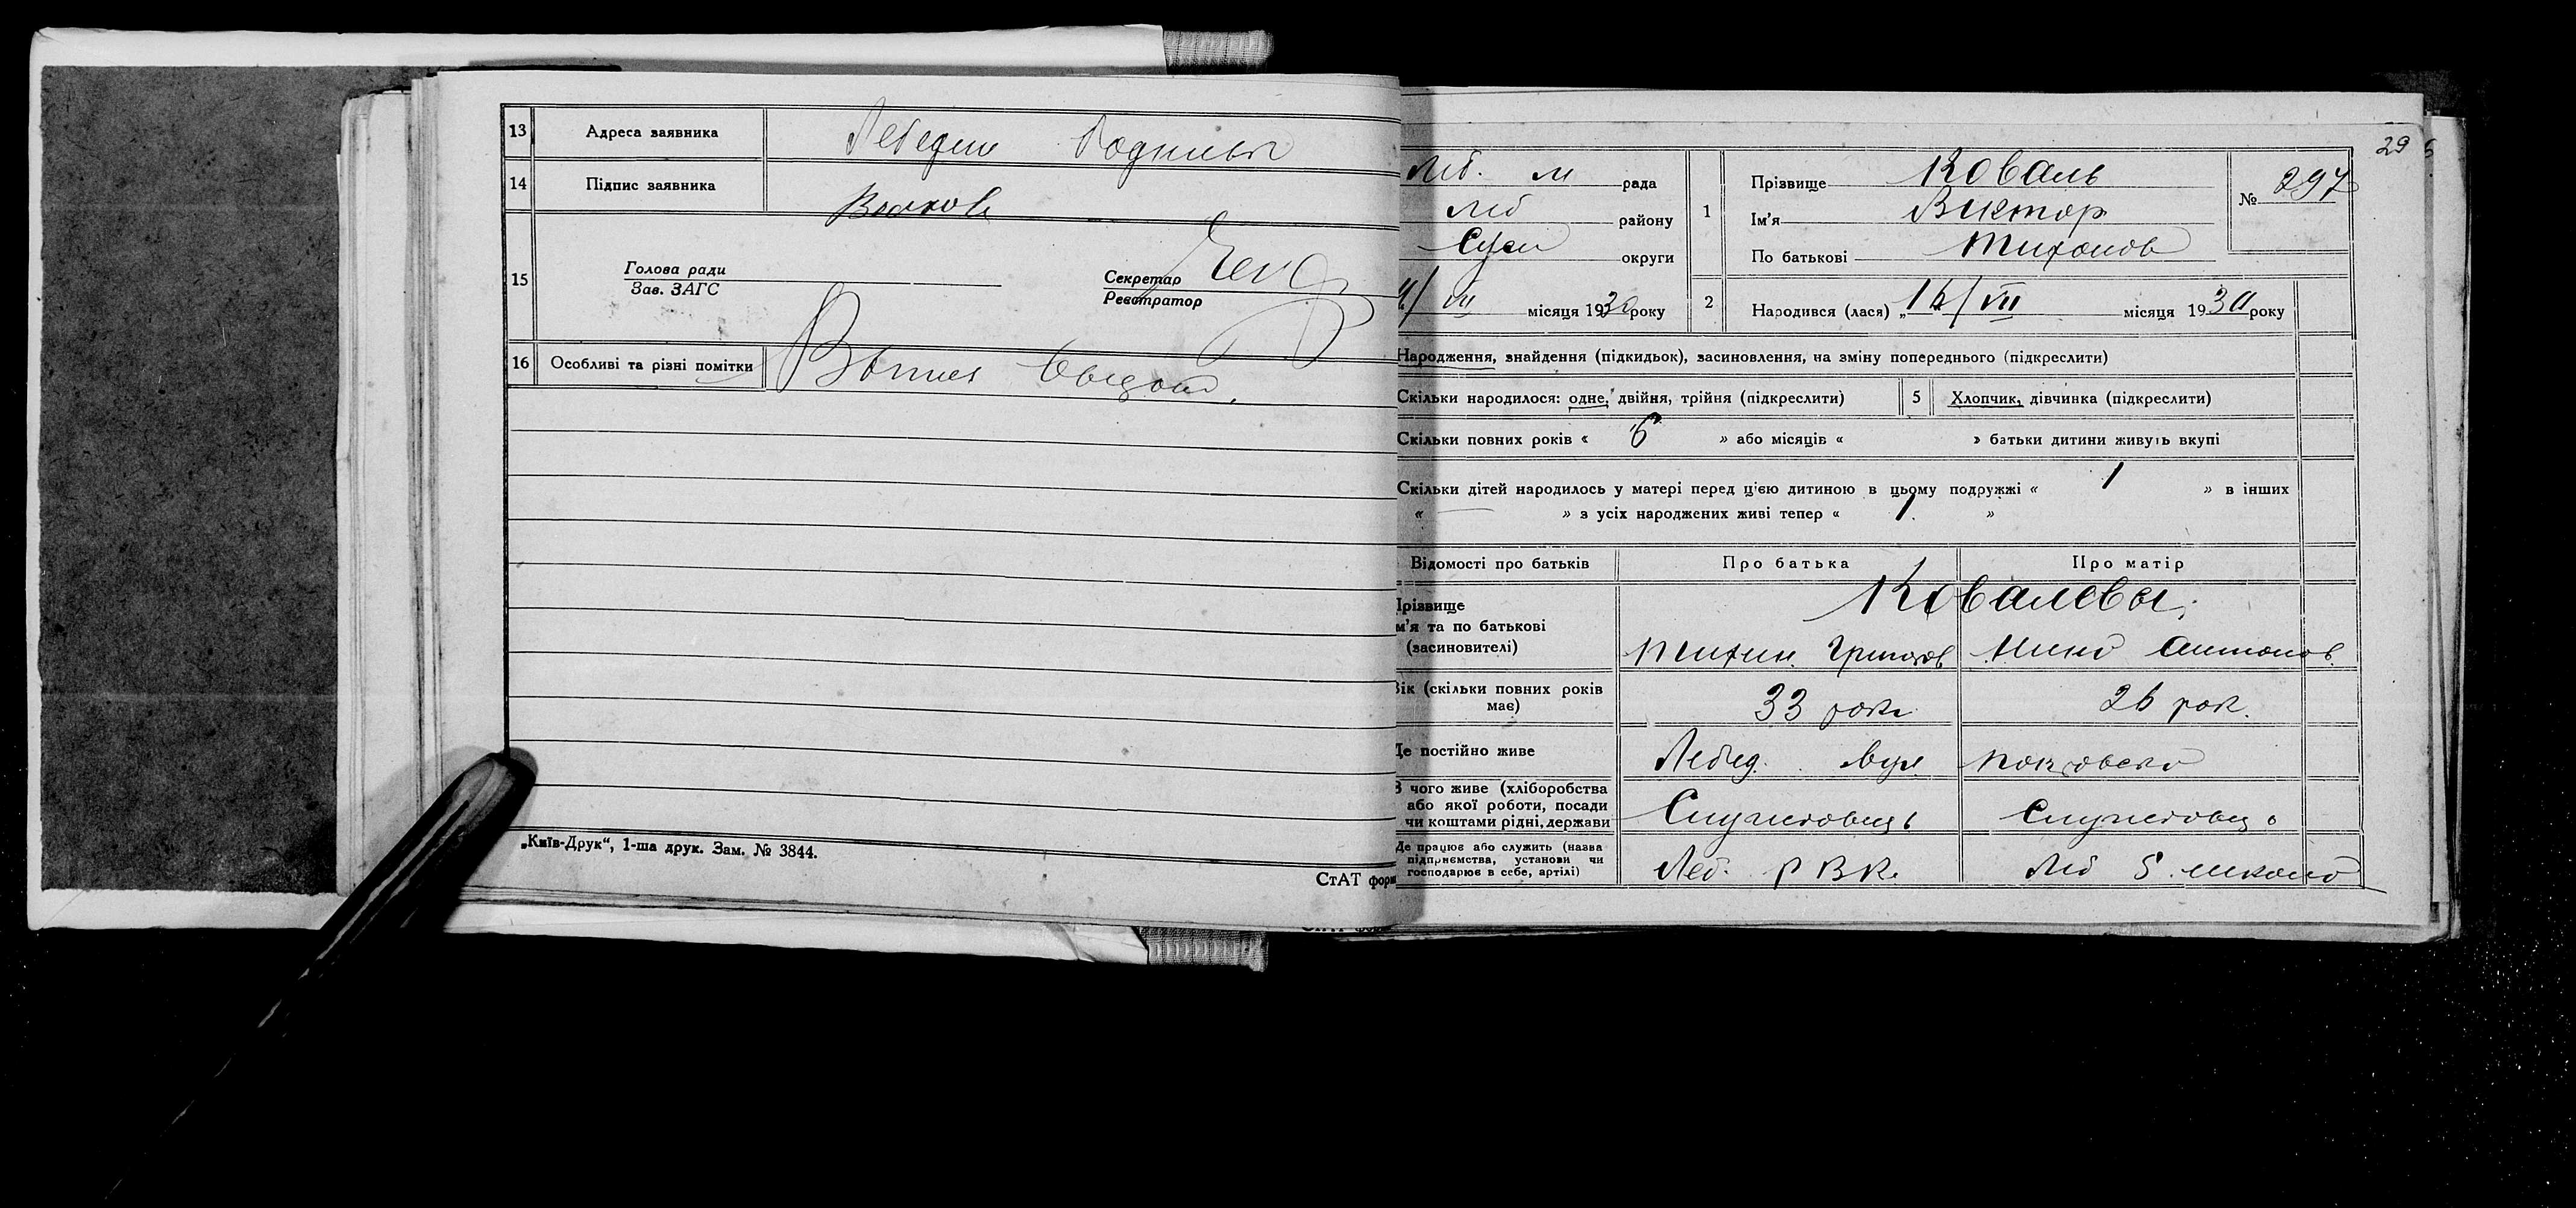 13 Адреса заявника Лебедин
14 Підпис заявника
15 Голова ради
Зав. ЗАГС
Секретар
Реєстратор
16 Особливі та різні помітки
„Київ-Друк“, 1-ша друк. Зам. № 3844.
СтАТ форм
29
Леб. м рада
Леб району
Сум округи
VII місяця 1930 року
1 Прізвище Коваль
Ім’я Виктор
По батькові Тихонов
№ 297
2 Народився (лася) „16/VII місяця 1930 року
Народження, знайдення (підкидьок), засиновлення, на зміну попереднього (підкреслити)
Скільки народилося: одне, двійня, трійня (підкреслити)
5 Хлопчик, дівчинка (підкреслити)
Скільки повних років « 6 » або місяців « » батьки дитини живуть вкупі
Скільки дітей народилось у матері перед цією дитиною в цьому подружжі « 1 » в інших
« — » з усіх народжених живі тепер « 1 »
Відомості про батьків Про батька Про матір
Прізвище
м’я та по батькові
(засновителі)
Ковалевы
Тихин Григоров Нина Антонов
Вік (скільки повних років
має)
33 роки 26 рок.
Де постійно живе Лебед. вул Покровска
З чого живе (хліборобства
або якої роботи, посади
чи коштами рідні, держави
Службовець Службовець
Де працює або служить (назва
підприємства, установи чи
господарює в себе, артілі)
Леб. РВК. Леб 5. школа